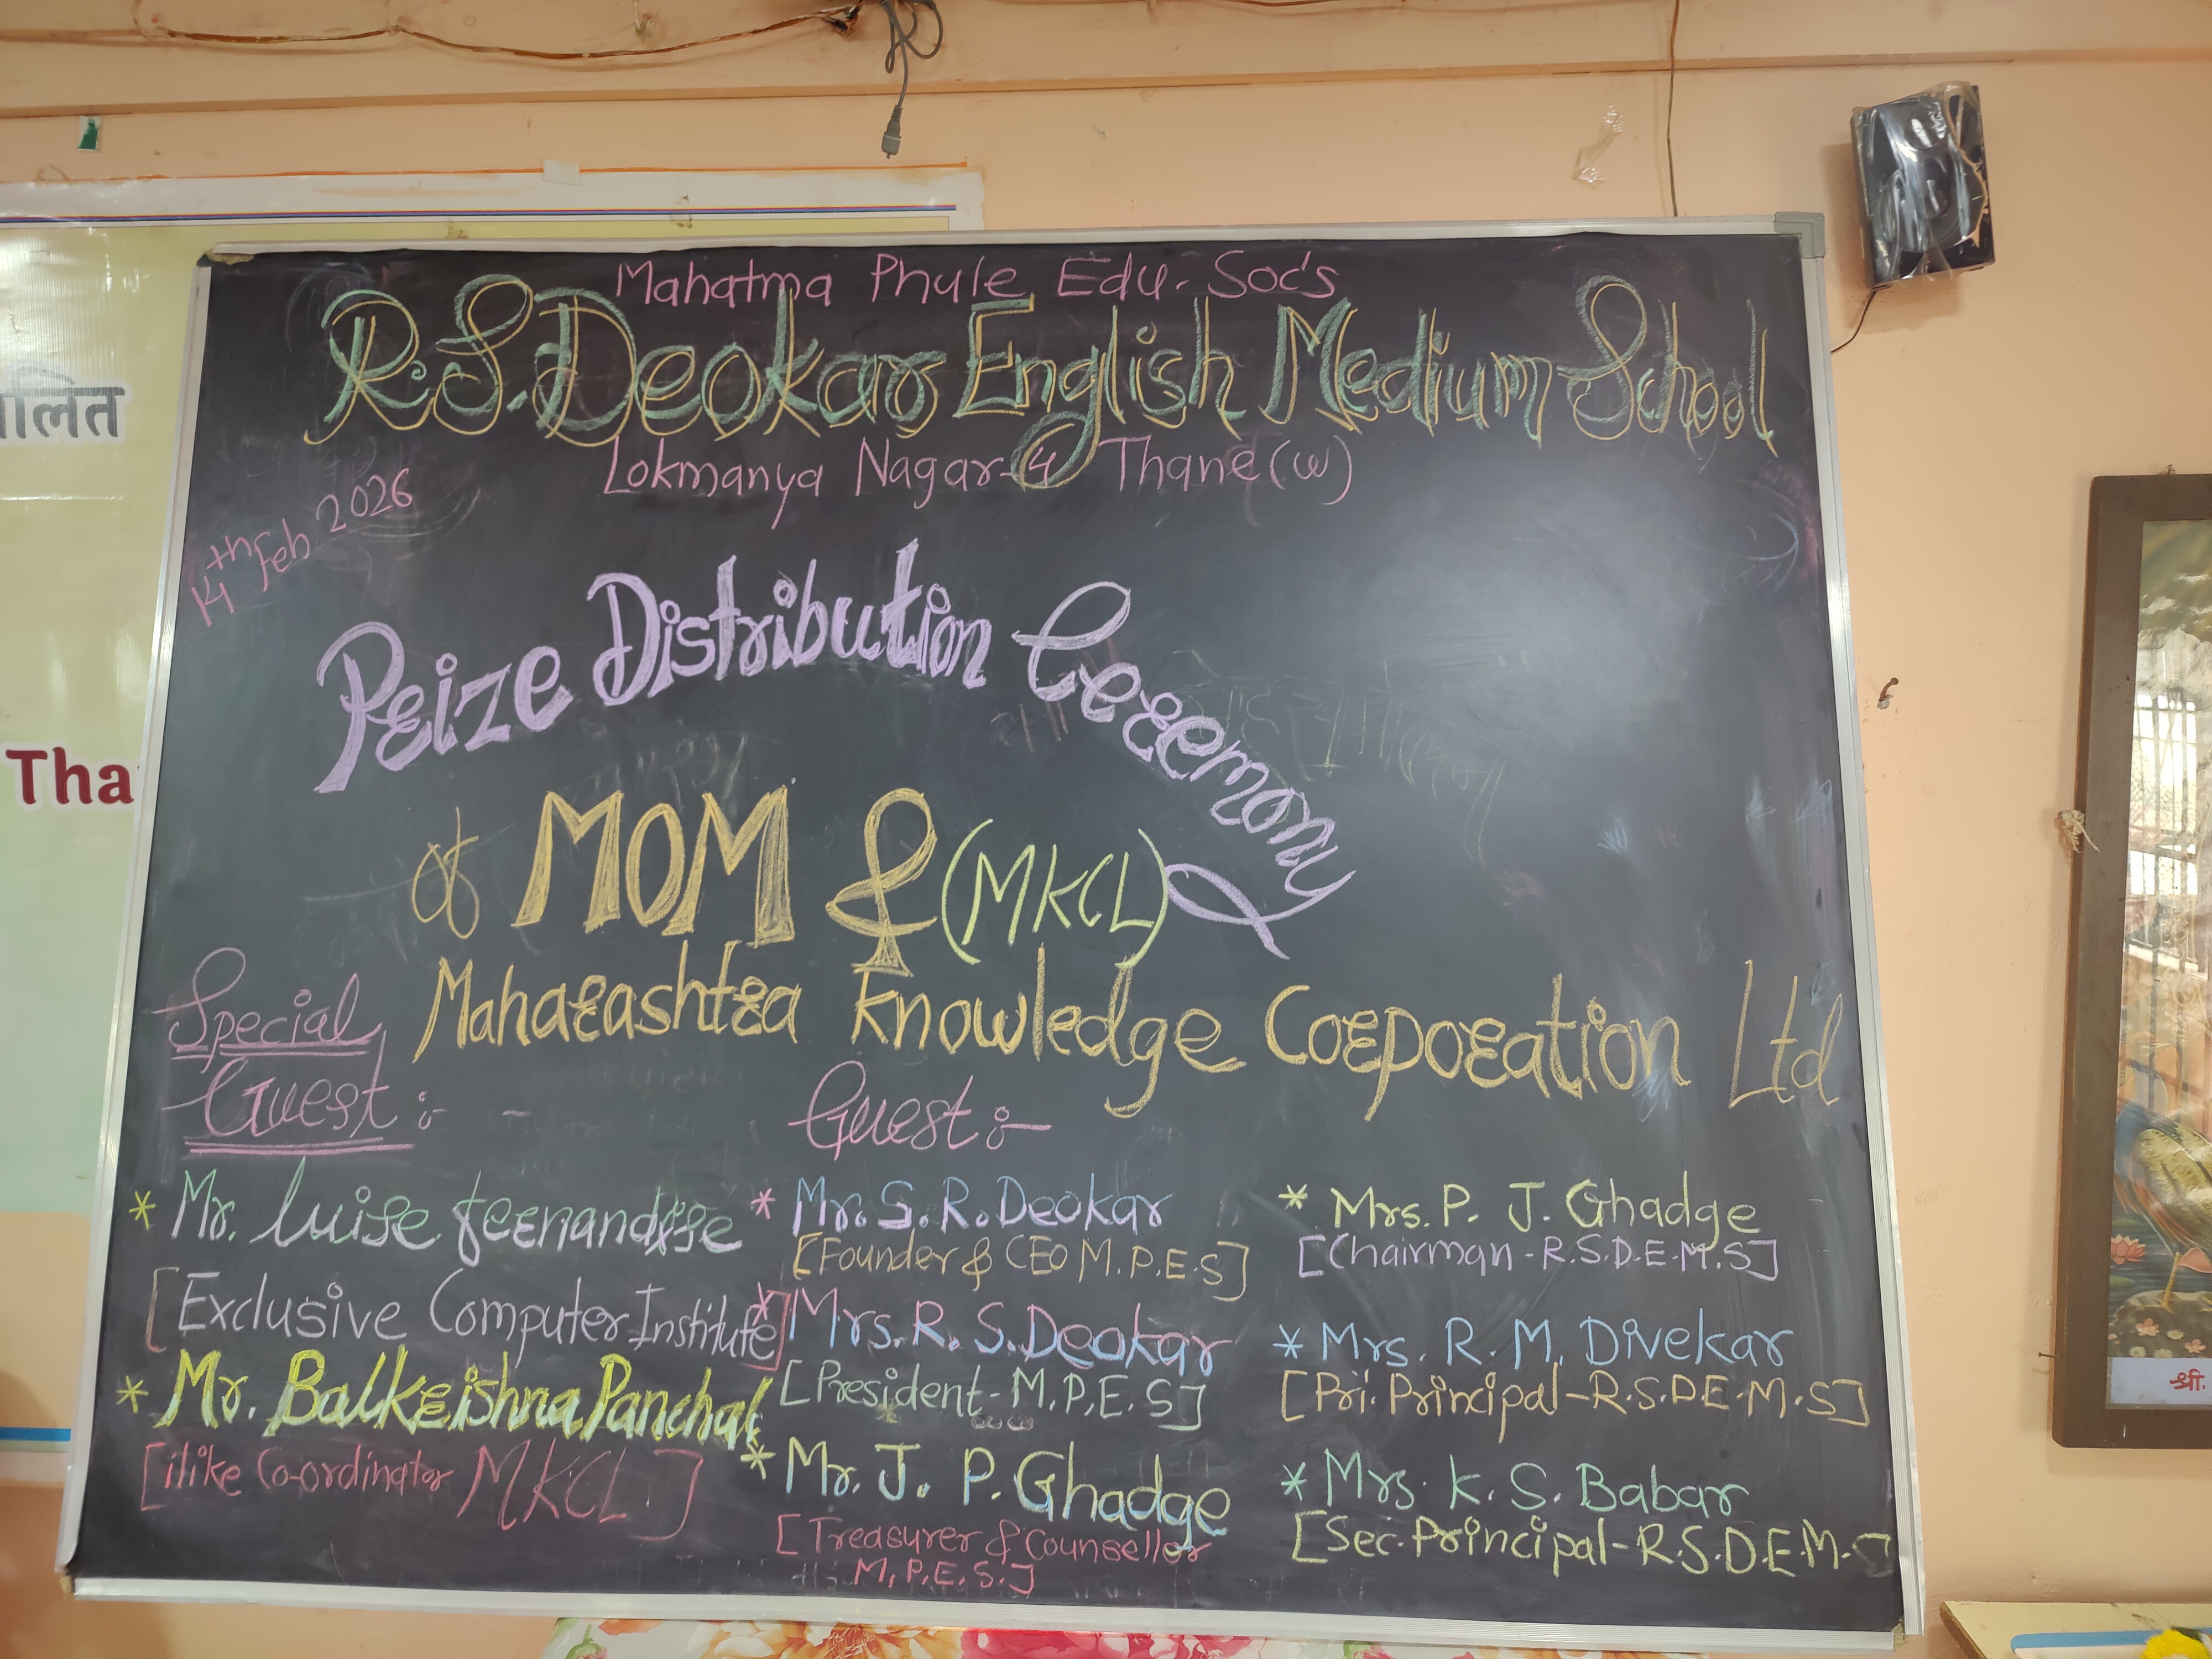 Mahatma Phule Edu. Soc's
R.S. Deokar English Medium School
Lokmanya Nagar-4 Thane (W)
14th Feb 2026
Prize Distribution Ceremony
of MOM & (MKCL)
Maharashtra Knowledge Corporation Ltd
Special
Guest :-
* Mr. Luise
[Exclusive Computer Institute]
* Mr. Balkrishna Panchal
[ilike Co-ordinator MKCL]
Guest :-
* Mr. S. R. Deokar
[Founder & CEO M.P.E.S]
* Mrs. R. S. Deokar
[President - M.P.E.S]
* Mr. J. P. Ghadge
[Treasurer & Counsellor
M.P.E.S.]
* Mrs. P. J. Ghadge
[Chairman - R.S.D.E.M.S]
* Mrs. R. M. Divekar
[Pri. Principal - R.S.D.E.M.S]
* Mrs. K. S. Babar
[Sec. Principal - R.S.D.E.M.S
Tha
श्री.